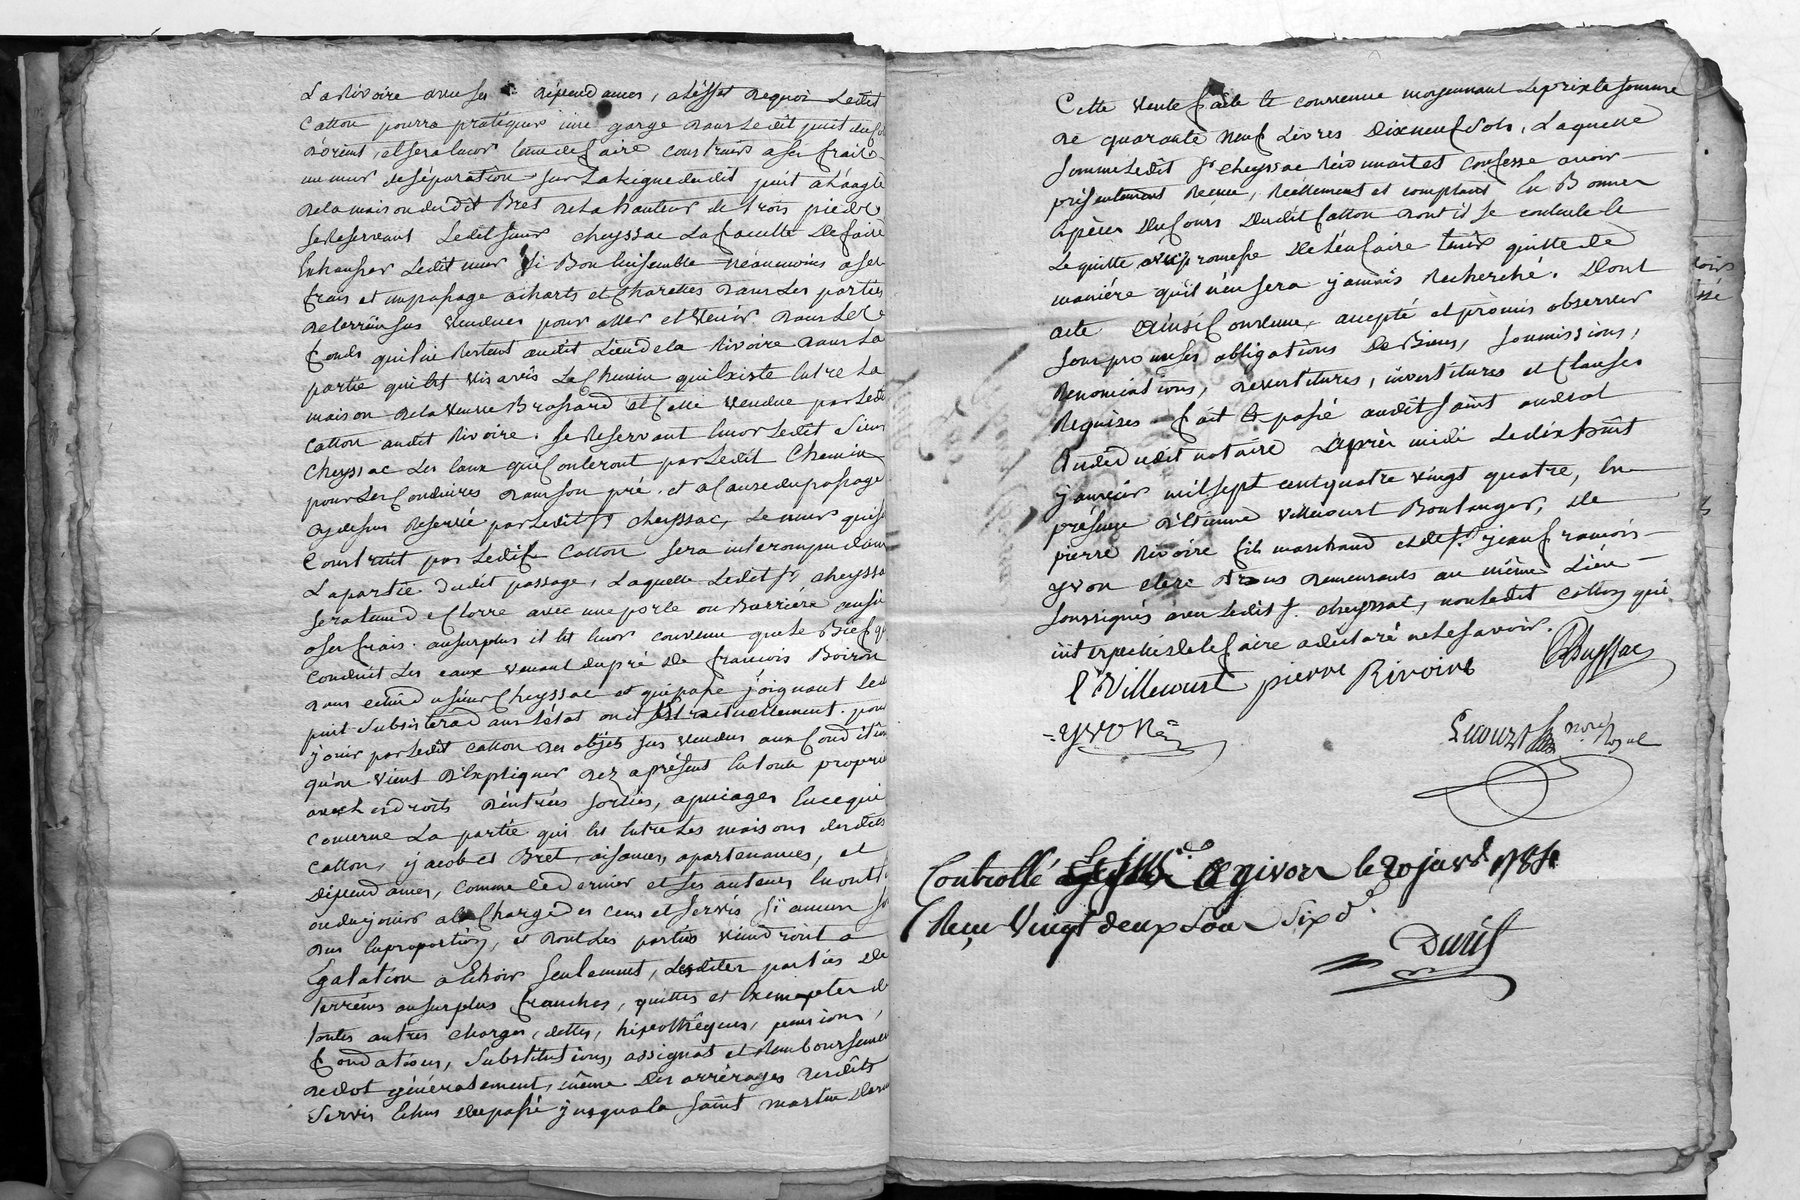 La Rivoire avec ses dépendances, a l'effet de quoi Ledit
Catton pourra pratiquer une gorge dans Ledit puit du Coté
d'orient, et sera encor tenu de faire construire a ses frais
un mur de séparation sur La ligne dudit puit a L'angle
de la maison dudit Bret de la hauteur de trois pieds
se Reservant Ledit sieur cheyssac La faculté De faire
Exhausser Ledit mur si Bon lui semble neanmoins a ses
frais et un passage a chars et Charettes dans Les parties
de terrein sus vendues pour aller et venir dans Les
fonds qui lui Restent audit Lieu de la Rivoire dans La
partie qui Est vis avis Le Chemin qui Existe Entre La
maison de la veuve Brossard et Celle vendue par Ledit
Catton audit Rivoire. se Reservant Encor Ledit Sieur
Cheyssac Les Eaux qui Couleront par Ledit Chemin
pour Les Conduires dans son pré, et a Cause du passage
cy dessus Reservé par Ledit Sr cheyssac, Le mur qui sera
Construit par Ledit Catton sera interompu dans
La partie dudit passage, Laquelle Ledit Sr. cheyssac
sera tenu de Clorre avec une porte ou Barriére aussi
a ses frais. au surplus il Est Encor convenu que Le Bief qui
conduit Les eaux venant du pré de francois Boiron
dans celui du sieur Cheyssac et qui passe joignant Ledit
puit subsistera dans l'état ou il Est actuellement. pour
jouir par Ledit Catton des objets sus vendus aux Conditions
qu'on vient d'Expliquer dez a présent En toute propriété
avec Les droits d'entrées sorties, apuiages En ce qui
concerne La partie qui Est Entre Les maisons desdits
Catton, jacob et Bret, aisances, apartenances, et
dépendances, comme ce dernier et ses auteurs En ont
ou du jouir a la Charge des cens et servis si aucun sont
dus En proportion, et dont Les parties viendront a
Egalation a Echoir seulement, Lesdites parties de
terreins au surplus franches, quittes et Exemptes de
toutes autres charges, dettes, hipothêques, pensions,
fondations, substitutions, assignat et Remboursement
de dot généralement, même des arrérages desdits
servis Echus du passé jusqu'a la saint martin Dernier
Cette vente faite Et convenue moyennant Le prix Et somme
de quarante neuf Livres Dix neuf Sols, Laquelle
somme Ledit Sr cheyssac Reconnait et confesse avoir
présentement Recue, Réellement et comptant En Bonnes
Espèces Du Cours Dudit Catton dont il se contente Et
Le quitte avec promesse De L'en faire tenir quitte de
maniére qu'il n'en sera jamais Recherché. Dont
acte Ainsi Convenu, accepté et promis observer
sous promesses obligations De Biens, soumissions,
Renonciations, devestitures, investitures et Clauses
Requises fait Et passé audit saint andeol
Etude dudit notaire Après midi Le dix huit
janvier mil sept cent quatre vingt quatre, En
présence d'Etienne Villecourt Boulanger, de
pierre Rivoire fils marchand et de Sr. jean francois
yvon clerc tous demeurants au même Lieu
soussignés avec Ledit Sr. cheyssac, non Ledit Catton qui
interpellé de le faire a déclaré ne Le savoir.
E Villecourt pierre Rivoire Cheyssac
yvon
Lecourt nore. Royal
Controllé a Givors le 20 janv. 1784
Reçu Vingt deux Sous Six d.